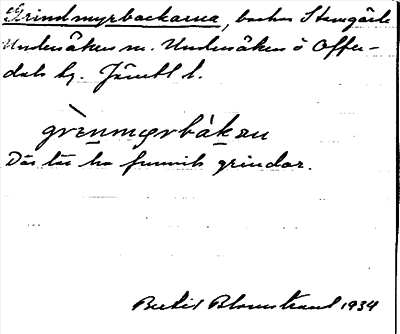 Grindmyrbackarna, backar Stamgärde
Undersåkers sn. Undersåkers o Offer-
dals hg. Jämtl l.
grènmyrbàkan
Där lär ha funnits grindar.
Bertil Blomstrand 1934